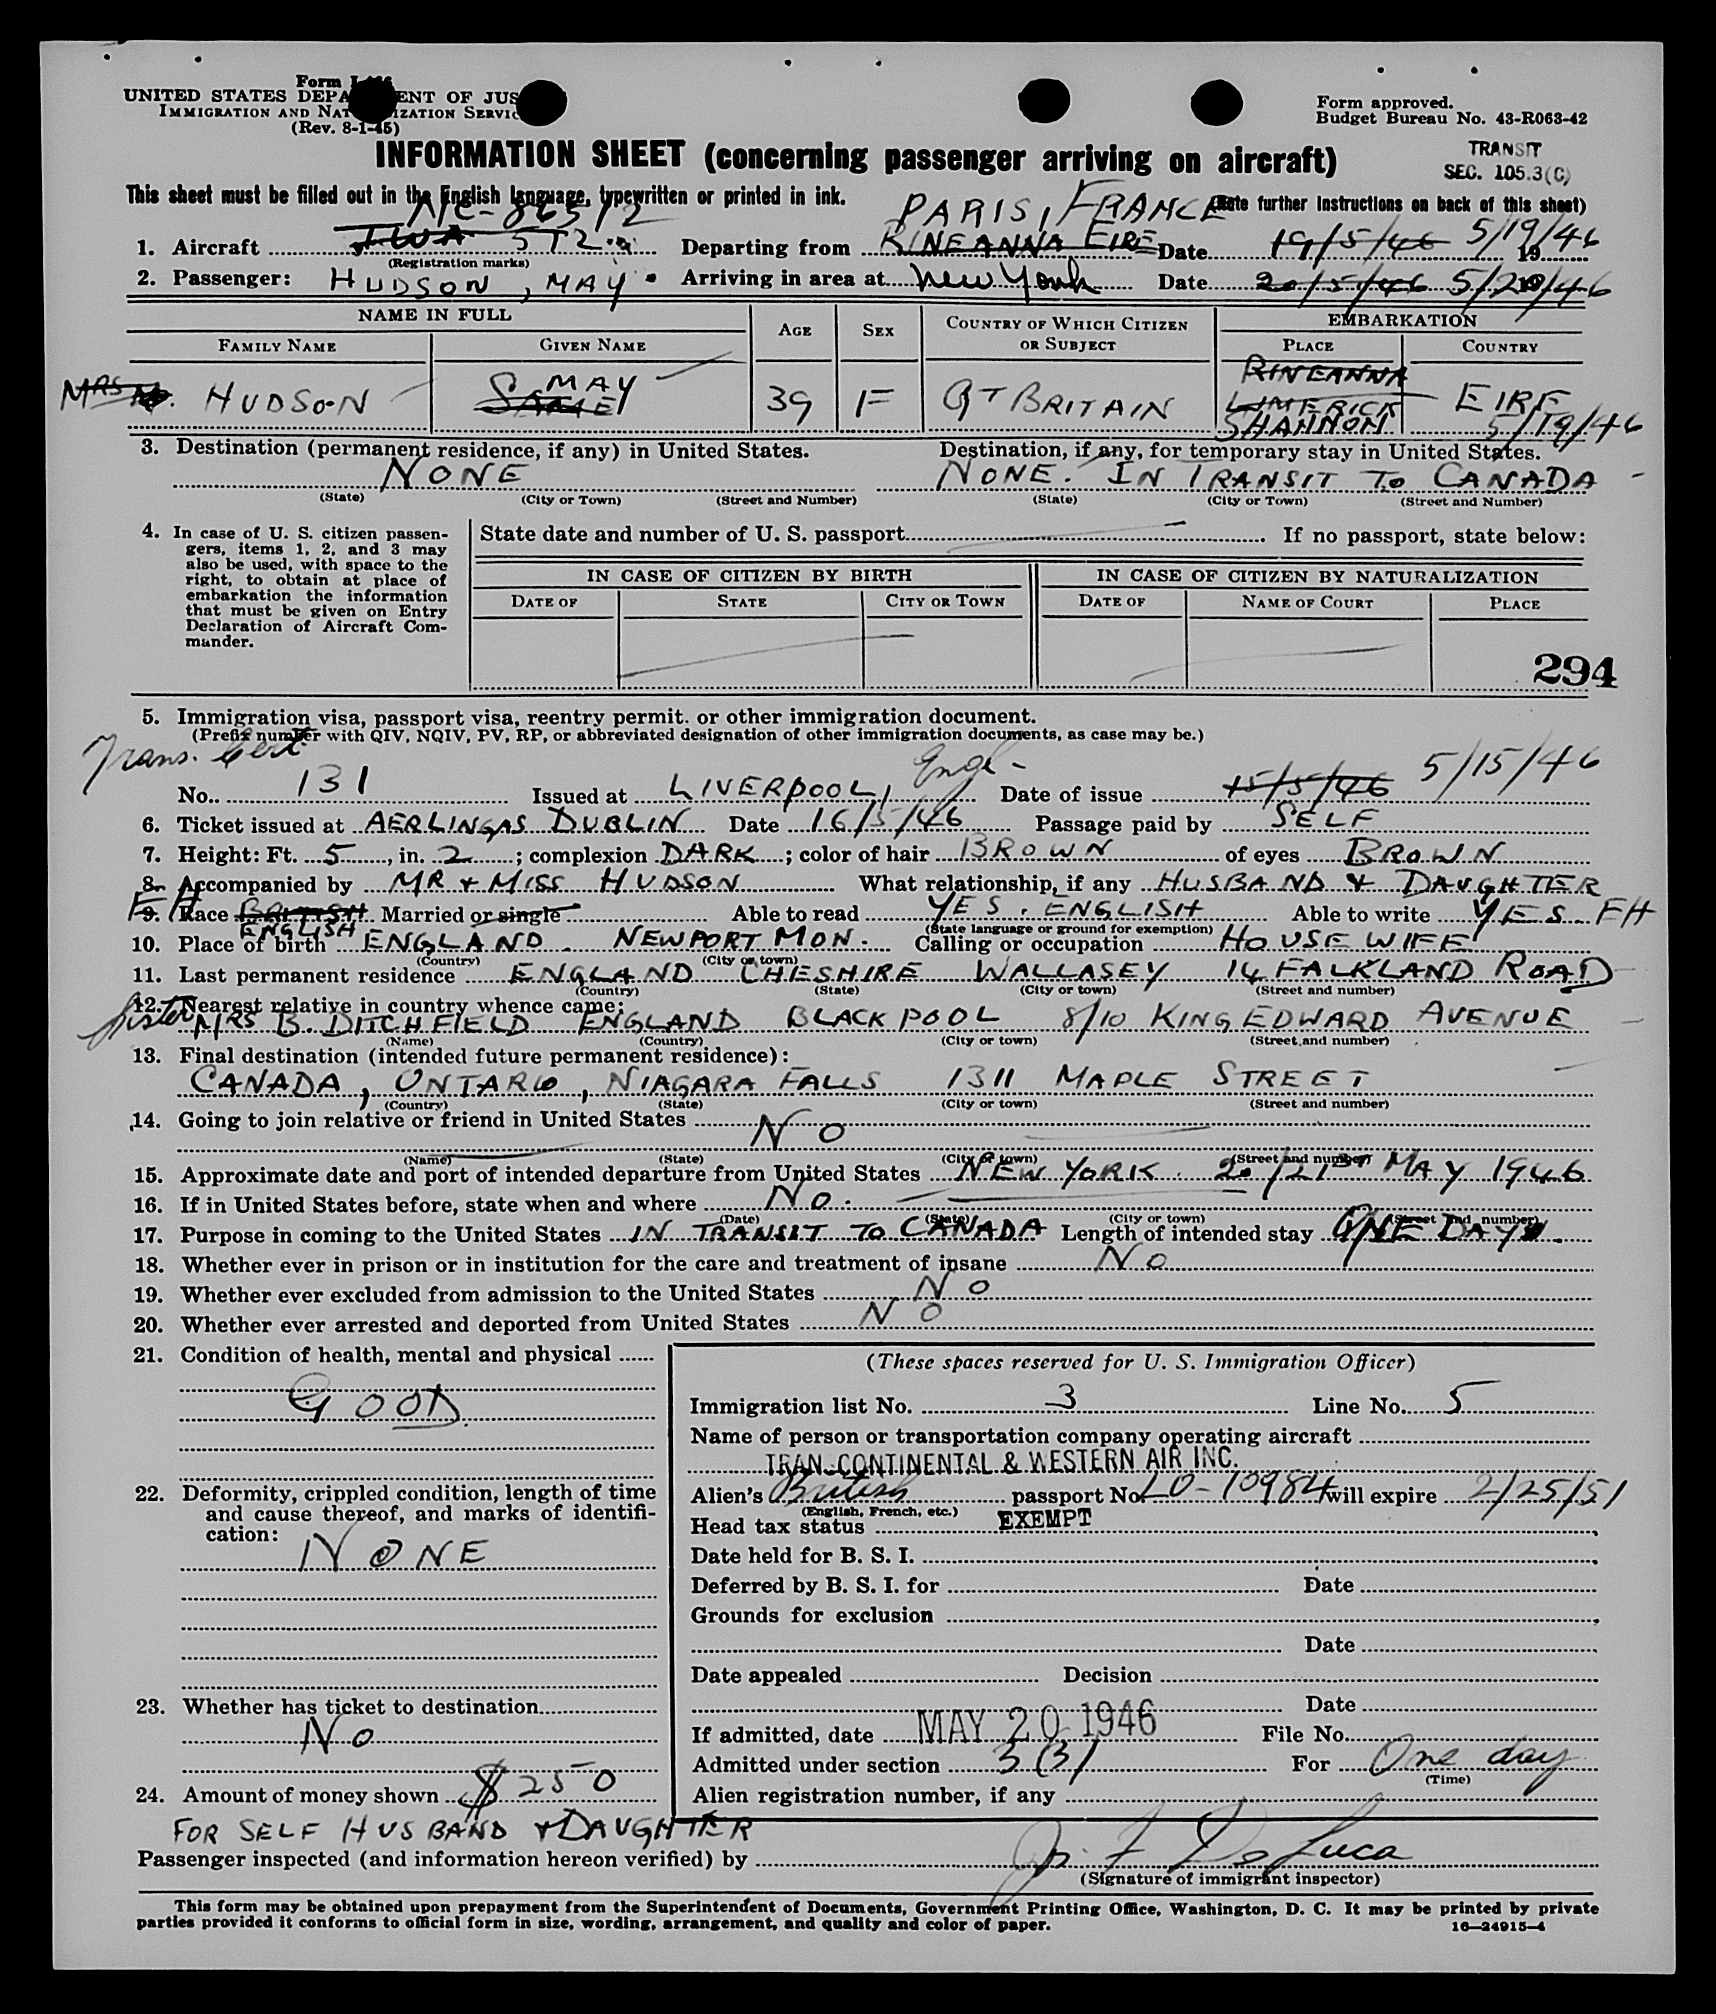 Form I-466
UNITED STATES DEPARTMENT OF JUSTICE
IMMIGRATION AND NATURALIZATION SERVICE
(Rev. 8-1-45)
Form approved.
Budget Bureau No. 43-R063-42
TRANSIT
SEC. 105.3(C)
INFORMATION SHEET (concerning passenger arriving on aircraft)
This sheet must be filled out in the English language, typewritten or printed in ink. (Note further instructions on back of this sheet)
NC-86512 PARIS, FRANCE
1. Aircraft TWA 512 Departing from RINEANNA EIRE Date 19/5/46 5/19/46
(Registration marks)
2. Passenger: HUDSON, MAY Arriving in area at New York Date 20/5/46 5/20/46
NAME IN FULL AGE SEX COUNTRY OF WHICH CITIZEN OR SUBJECT EMBARKATION
FAMILY NAME GIVEN NAME PLACE COUNTRY
MRS HUDSON MAY 39 F GT BRITAIN RINEANNA LIMERICK SHANNON EIRE 5/19/46
3. Destination (permanent residence, if any) in United States. Destination, if any, for temporary stay in United States.
NONE NONE. IN TRANSIT TO CANADA
(State) (City or Town) (Street and Number) (State) (City or Town) (Street and Number)
4. In case of U. S. citizen passengers, items 1, 2, and 3 may also be used, with space to the right, to obtain at place of embarkation the information that must be given on Entry Declaration of Aircraft Commander.
State date and number of U. S. passport If no passport, state below:
IN CASE OF CITIZEN BY BIRTH IN CASE OF CITIZEN BY NATURALIZATION
DATE OF STATE CITY OR TOWN DATE OF NAME OF COURT PLACE
294
5. Immigration visa, passport visa, reentry permit, or other immigration document.
(Prefix number with QIV, NQIV, PV, RP, or abbreviated designation of other immigration documents, as case may be.)
Trans. Cert.
No. 131 Issued at LIVERPOOL, Engl- Date of issue 15/5/46 5/15/46
6. Ticket issued at AERLINGAS DUBLIN Date 16/5/46 Passage paid by SELF
7. Height: Ft. 5, in. 2; complexion DARK; color of hair BROWN of eyes BROWN
8. Accompanied by MR & MISS HUDSON What relationship, if any HUSBAND & DAUGHTER
FH 9. Race BRITISH ENGLISH Married or single Able to read YES. ENGLISH Able to write YES FH
(State language or ground for exemption)
10. Place of birth ENGLAND NEWPORT MON. Calling or occupation HOUSEWIFE
(Country) (City or town)
11. Last permanent residence ENGLAND CHESHIRE WALLASEY 14 FALKLAND ROAD
(Country) (State) (City or town) (Street and number)
12. Nearest relative in country whence came:
Sister MRS B. DITCHFIELD ENGLAND BLACKPOOL 8/10 KING EDWARD AVENUE
(Name) (Country) (City or town) (Street and number)
13. Final destination (intended future permanent residence):
CANADA, ONTARIO, NIAGARA FALLS 1311 MAPLE STREET
(Country) (State) (City or town) (Street and number)
14. Going to join relative or friend in United States NO
(Name) (State) (City or town) (Street and number)
15. Approximate date and port of intended departure from United States NEW YORK. 20/21st MAY 1946
16. If in United States before, state when and where NO.
(Date) (State) (City or town) (Street and number)
17. Purpose in coming to the United States IN TRANSIT TO CANADA Length of intended stay ONE DAY
18. Whether ever in prison or in institution for the care and treatment of insane NO
19. Whether ever excluded from admission to the United States NO
20. Whether ever arrested and deported from United States NO
21. Condition of health, mental and physical
GOOD
22. Deformity, crippled condition, length of time and cause thereof, and marks of identification:
NONE
23. Whether has ticket to destination
NO
24. Amount of money shown $250
FOR SELF HUSBAND & DAUGHTER
(These spaces reserved for U. S. Immigration Officer)
Immigration list No. 3 Line No. 5
Name of person or transportation company operating aircraft
TRAN-CONTINENTAL & WESTERN AIR INC.
Alien's British passport No. LO-10984 will expire 2/25/51
(English, French, etc.)
Head tax status EXEMPT
Date held for B. S. I.
Deferred by B. S. I. for Date
Grounds for exclusion
Date
Date appealed Decision
Date
If admitted, date MAY 20 1946 File No.
Admitted under section 3(3) For One day
(Time)
Alien registration number, if any
Passenger inspected (and information hereon verified) by De Luca
(Signature of immigrant inspector)
This form may be obtained upon prepayment from the Superintendent of Documents, Government Printing Office, Washington, D. C. It may be printed by private
parties provided it conforms to official form in size, wording, arrangement, and quality and color of paper. 16—24915-4